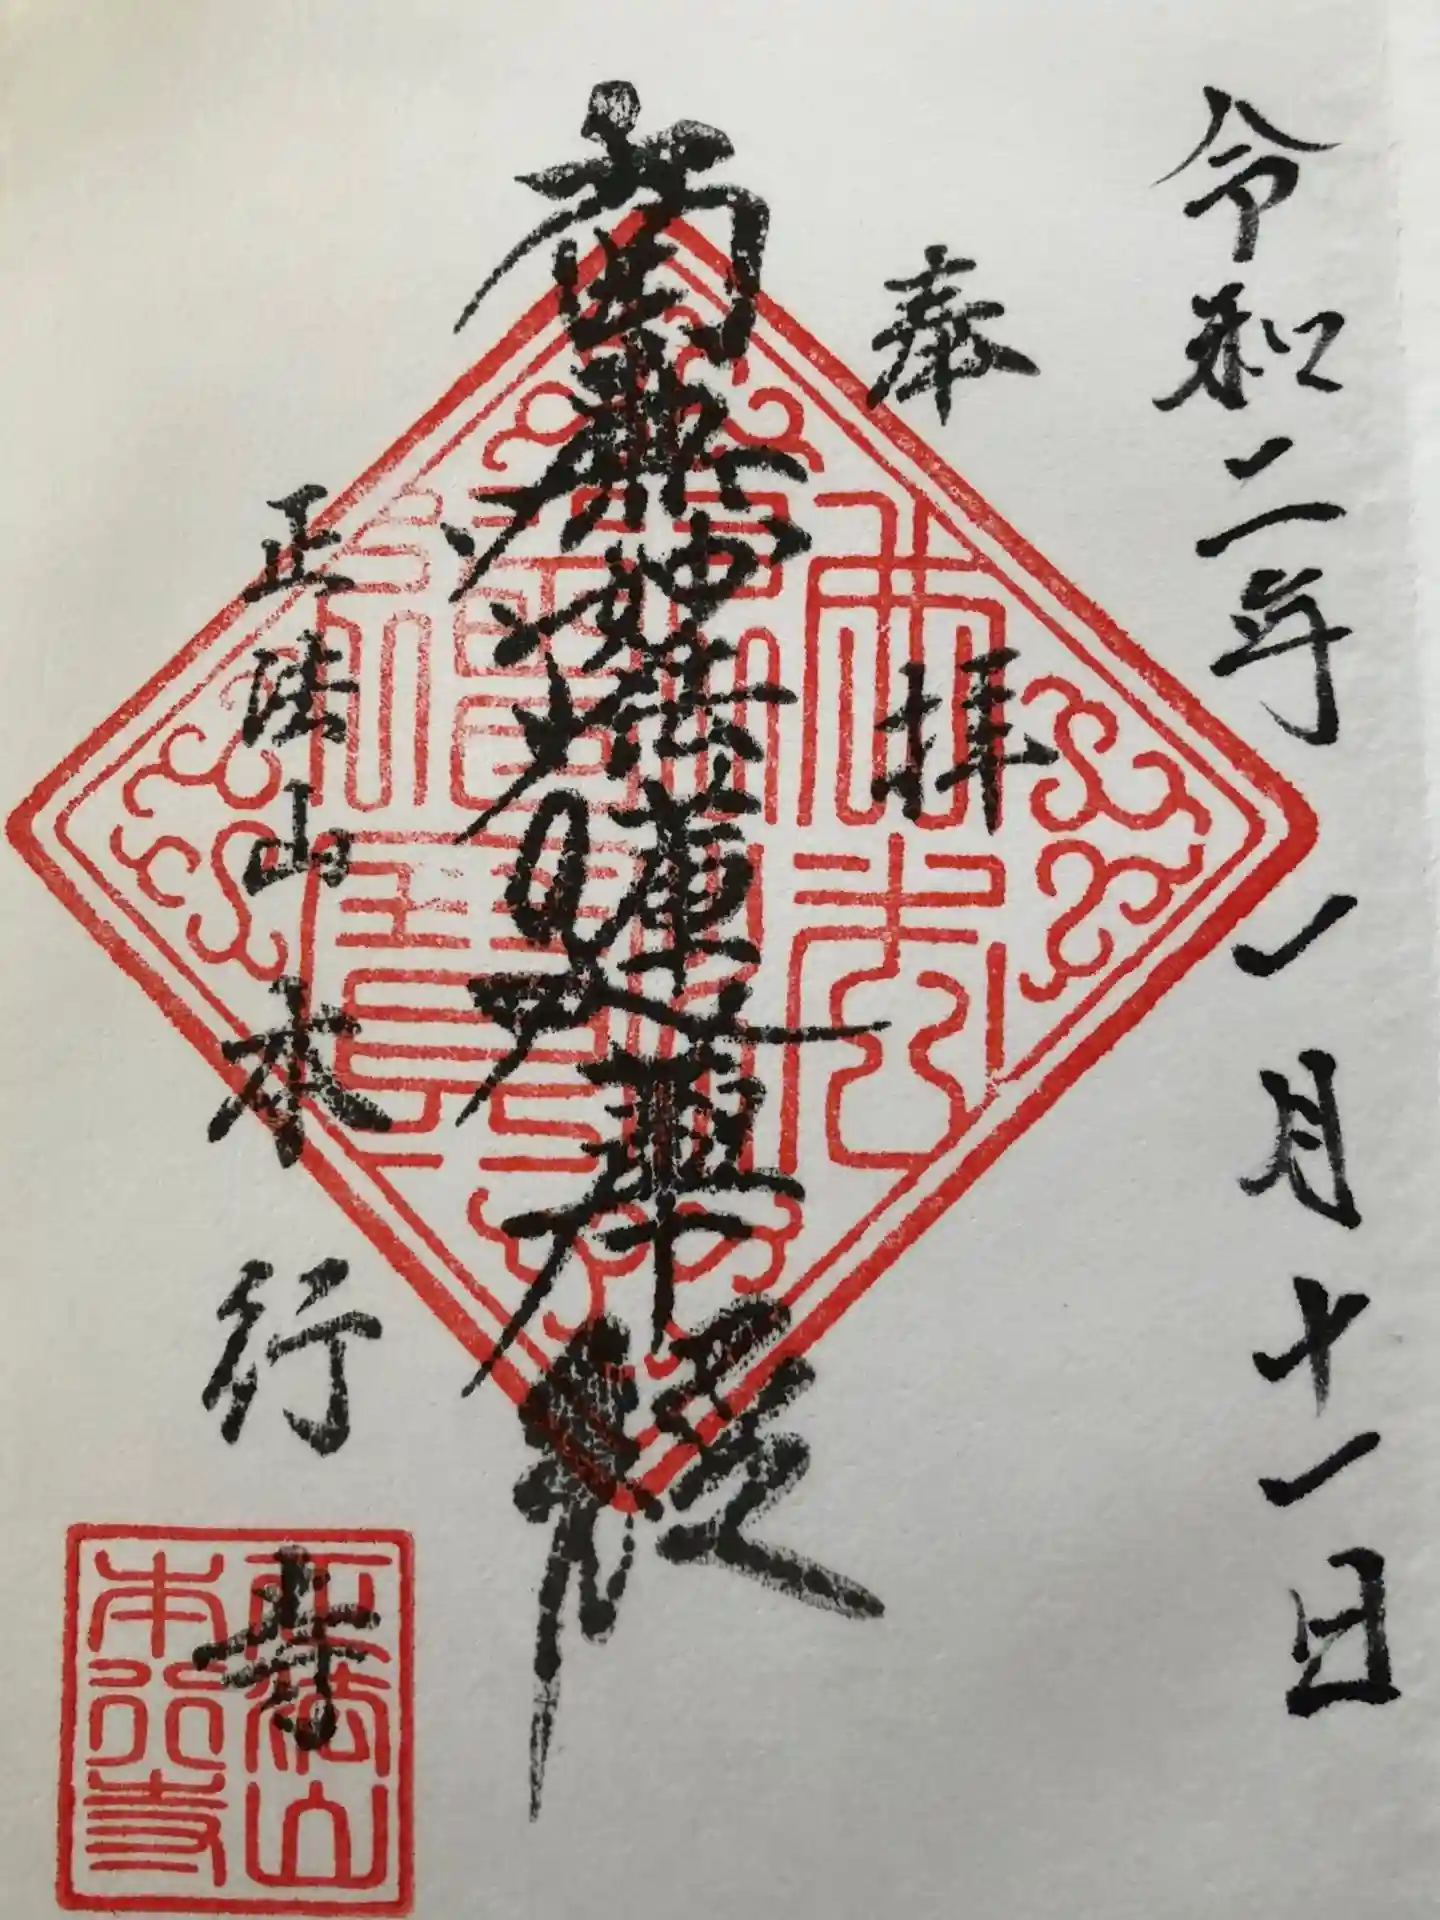 令和二年一月十一日
奉拝
南無妙法蓮華経
正法山本行寺
佛法僧寶
正法山
本行寺